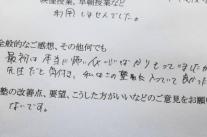 映像授業、早朝授業など
利用しませんでした。
全般的なご感想、その他何でも
最初は本当に怖いイメージばかりもっていましたが
先生だと気付き、私はこの塾に入っていて良かった
塾の改善点、要望、こうした方がいいなどのご意見をお願い
ないです。